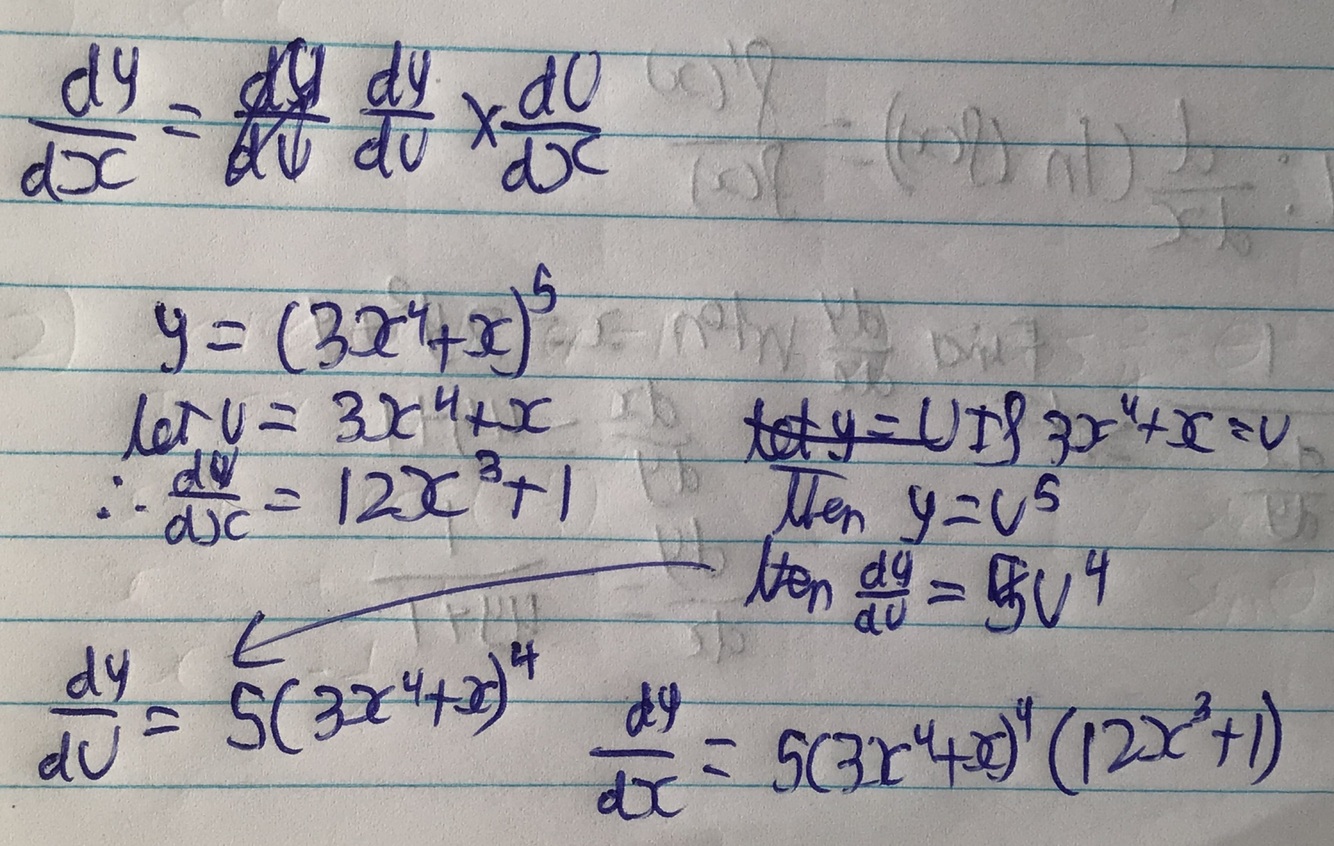 dy/dx = dy/du dy/du × dU/dx
y = (3x⁴+x)⁵
let u = 3x⁴+x
∴ du/dx = 12x³+1
let y = U If 3x⁴+x = U
Then y = U⁵
then dy/dU = 5U⁴
dy/dU = 5(3x⁴+x)⁴
dy/dx = 5(3x⁴+x)⁴ (12x³+1)